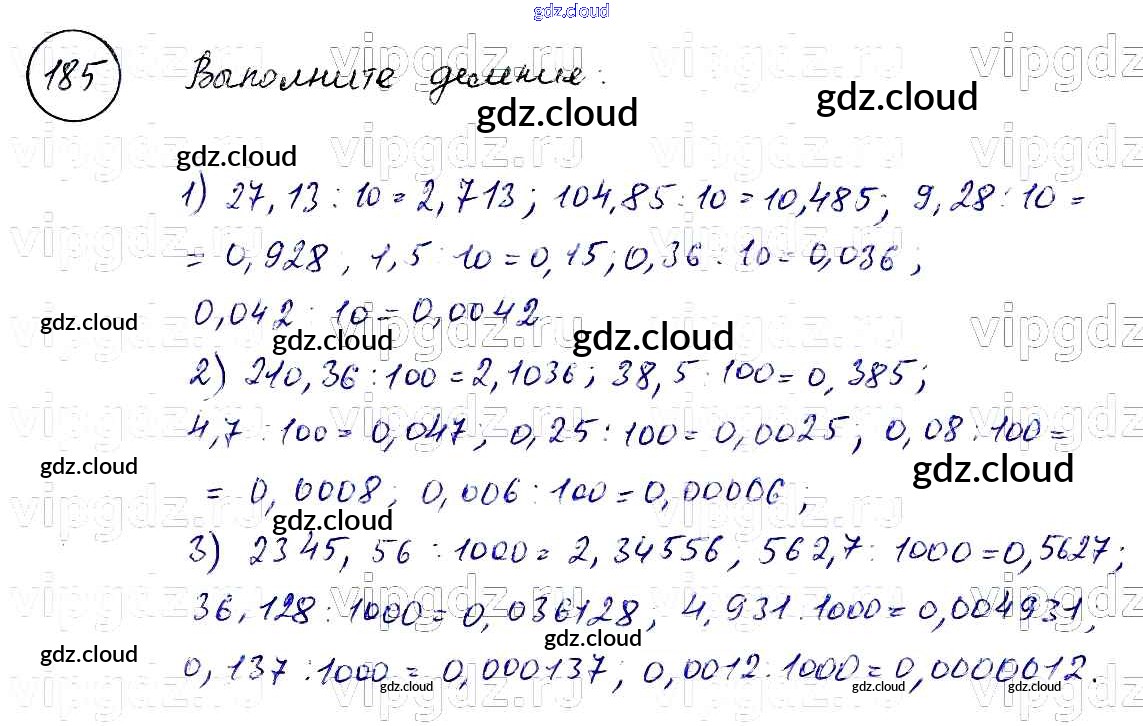 gdz.cloud
185 Выполните деление:
gdz.cloud gdz.cloud
gdz.cloud
1) 27,13 : 10 = 2,713; 104,85 : 10 = 10,485; 9,28 : 10 =
= 0,928, 1,5 : 10 = 0,15; 0,36 : 10 = 0,036;
0,042 : 10 = 0,0042
gdz.cloud gdz.cloud gdz.cloud
2) 210,36 : 100 = 2,1036; 38,5 : 100 = 0,385;
4,7 : 100 = 0,047; 0,25 : 100 = 0,0025; 0,08 : 100 =
gdz.cloud gdz.cloud
= 0,0008; 0,006 : 100 = 0,00006;
gdz.cloud
3) 2345,56 : 1000 = 2,34556, 562,7 : 1000 = 0,5627;
36,128 : 1000 = 0,036128; 4,931 : 1000 = 0,004931,
gdz.cloud gdz.cloud
0,137 : 1000 = 0,000137; 0,0012 : 1000 = 0,0000012.
gdz.cloud gdz.cloud gdz.cloud
vipgdz.ru vipgdz.ru vipgdz.ru vipgdz